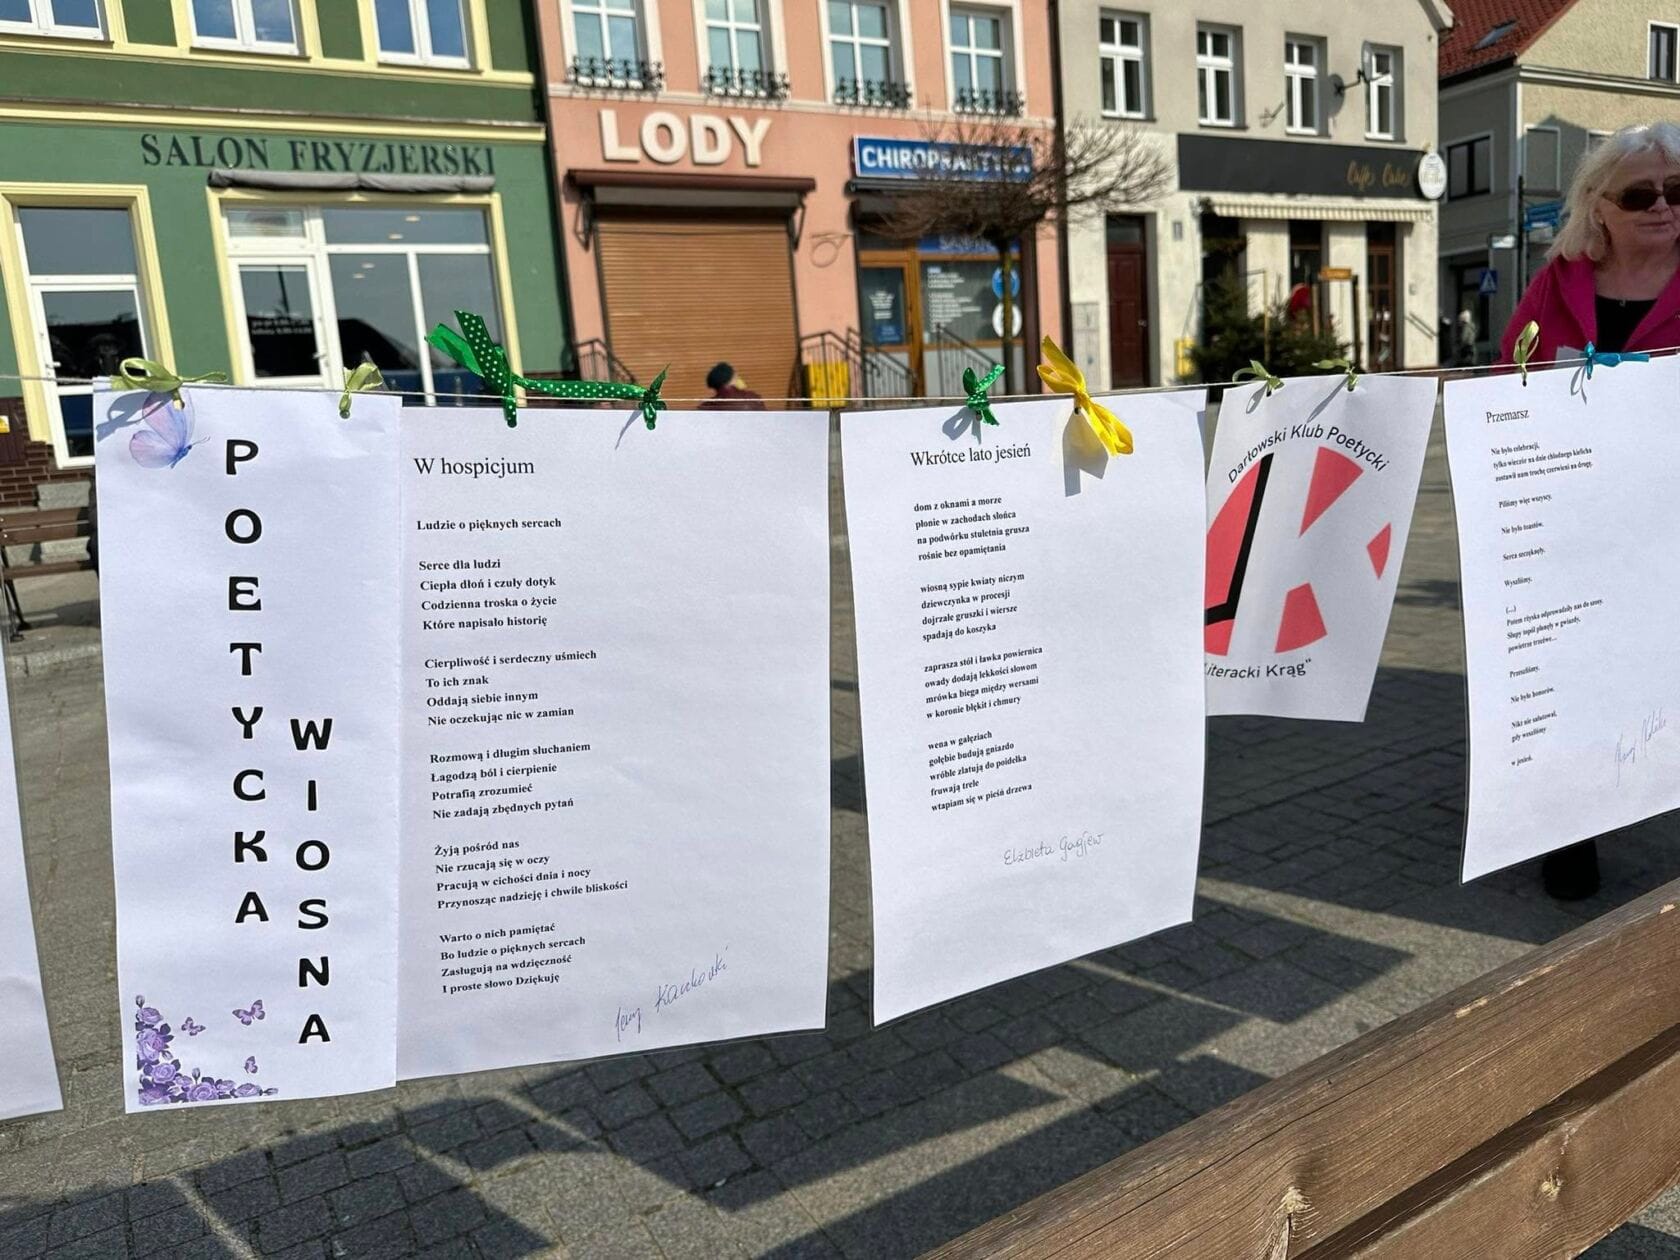 SALON FRYZJERSKI
LODY
CHIROPRAKTYKA
POETYCKA
WIOSNA
W hospicjum
Ludzie o pięknych sercach
Serce dla ludzi
Ciepła dłoń i czuły dotyk
Codzienna troska o życie
Które napisało historię
Cierpliwość i serdeczny uśmiech
To ich znak
Oddają siebie innym
Nie oczekując nic w zamian
Rozmową i długim słuchaniem
Łagodzą ból i cierpienie
Potrafią zrozumieć
Nie zadają zbędnych pytań
Żyją pośród nas
Nie rzucają się w oczy
Pracują w cichości dnia i nocy
Przynosząc nadzieję i chwile bliskości
Warto o nich pamiętać
Bo ludzie o pięknych sercach
Zasługują na wdzięczność
I proste słowo Dziękuję
Wkrótce lato jesień
dom z oknami a morze
płonie w zachodach słońca
na podwórku stuletnia grusza
rośnie bez opamiętania
wiosną sypie kwiaty niczym
dziewczynka w procesji
dojrzałe gruszki i wiersze
spadają do koszyka
zaprasza stół i ławka powiernica
owady dodają lekkości słowom
mrówka biega między wersami
w koronie błękit i chmury
wena w gałęziach
gołębie budują gniazdo
wróble zlatują do poidełka
fruwają trele
wtapiam się w pieśń drzewa
Elżbieta Gagjew
Darłowski Klub Poetycki
Literacki Krąg"
Przemarsz
Nie było celebracji,
tylko wieczór na dnie chłodnego kielicha
zostawił nam trochę czerwieni na drogę.
Piliśmy więc wszyscy.
Nie było toastów.
Serca szczękały.
Wyszliśmy.
(...)
Potem rżyska odprowadziły nas do szosy.
Słupy topól płonęły w gwiazdy,
powietrze trzeźwe...
Przeszliśmy.
Nie było honorów.
Nikt nie salutował,
gdy weszliśmy
w jesień.